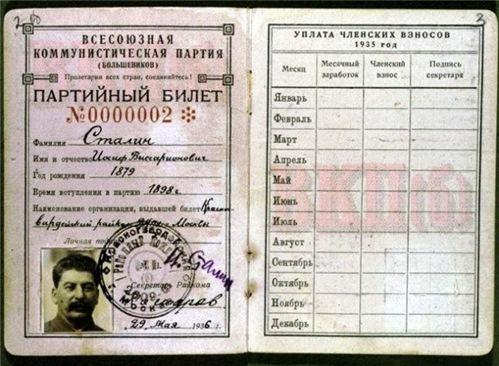 2
ВСЕСОЮЗНАЯ
КОММУНИСТИЧЕСКАЯ ПАРТИЯ
(БОЛЬШЕВИКОВ)
Пролетарии всех стран, соединяйтесь!
ПАРТИЙНЫЙ БИЛЕТ
№0000002
Фамилия Сталин
Имя и отчество Иосиф Виссарионович
Год рождения 1879
Время вступления в партию 1898 г.
Наименование организации, выдавшей билет Красно
гвардейский райком Москвы
Личная подпись И. Сталин
Секретарь Райкома
29 Мая 1936 г.
3
УПЛАТА ЧЛЕНСКИХ ВЗНОСОВ
1935 год
Месяц Месячный заработок Членский взнос Подпись секретаря
Январь
Февраль
Март
Апрель
Май
Июнь
Июль
Август
Сентябрь
Октябрь
Ноябрь
Декабрь
ВКП(б)